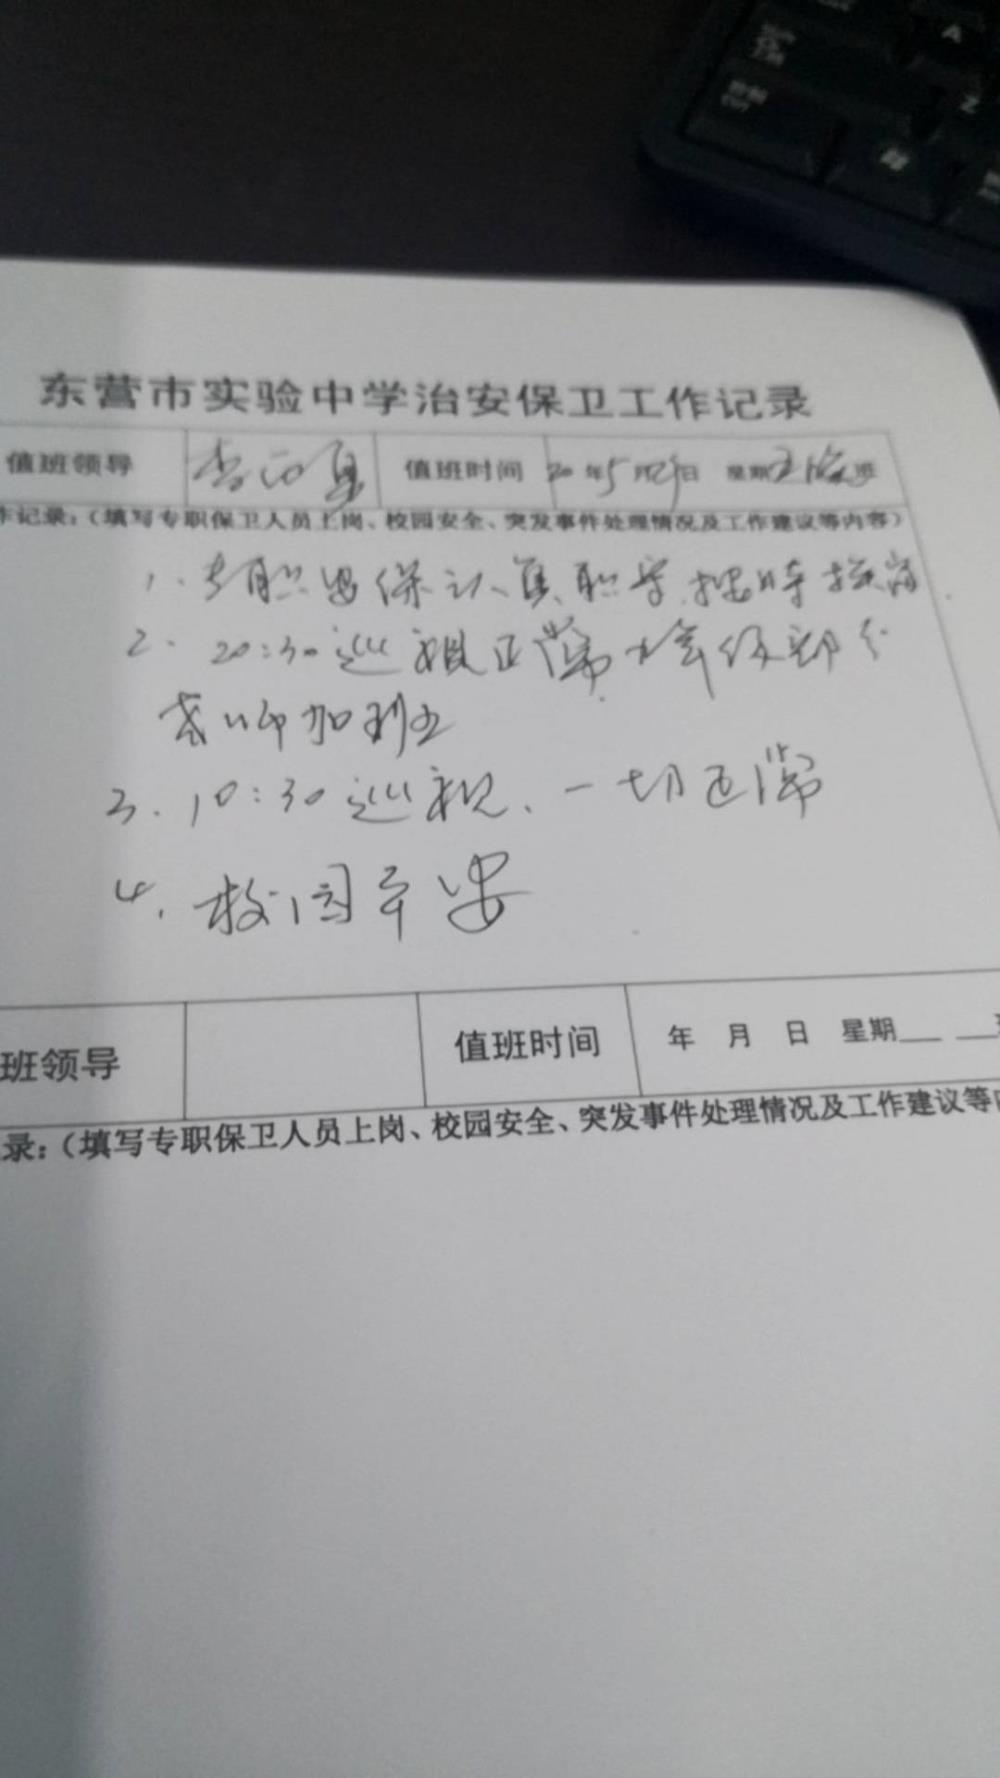 东营市实验中学治安保卫工作记录
值班领导 值班时间 20年5月 日 星期五 班
作记录：（填写专职保卫人员上岗、校园安全、突发事件处理情况及工作建议等内容）
1. 专职 保认真职守、按时接岗
2. 20:30巡视正常 年级部分
老师加班
3. 10:30巡视、一切正常
4. 校园平安
班领导 值班时间 年 月 日 星期
录：（填写专职保卫人员上岗、校园安全、突发事件处理情况及工作建议等内
A
Z